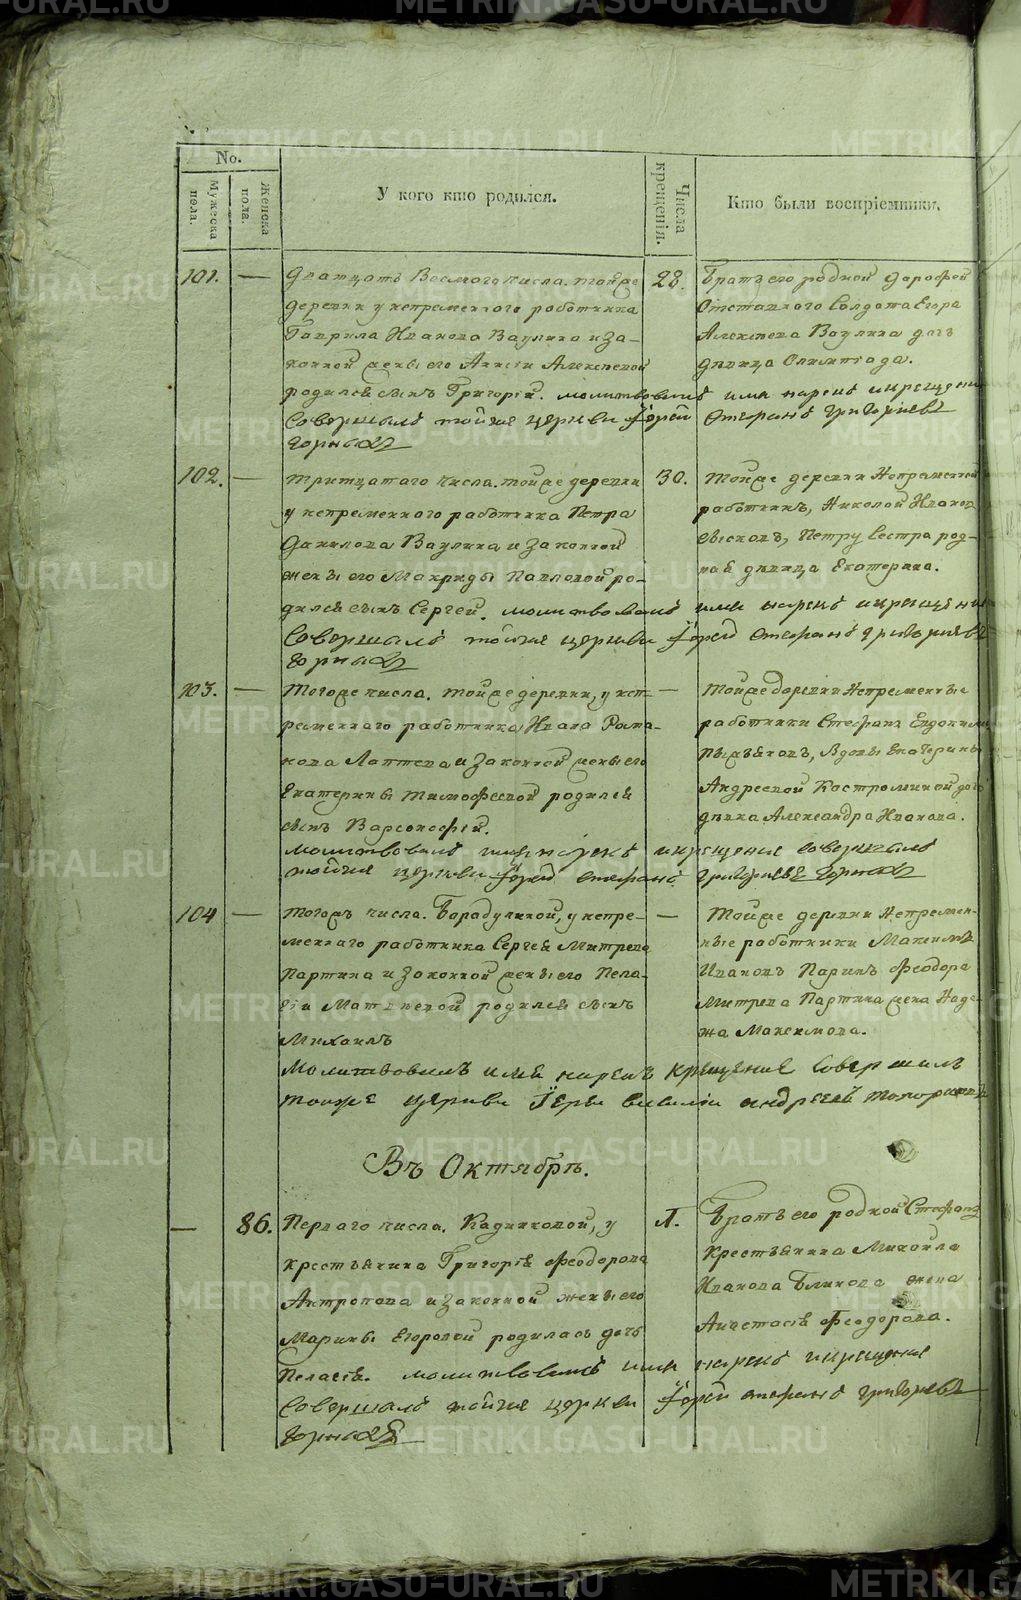 No.
Мужеска пола.
Женска пола.
У кого кто родился.
Числа крещенія.
Кто были воспріемники.
101. — Двадцать Восмого числа. тойже
деревни у непременного работника
Гаврила Иванова Ваулина и за-
конной жены его Алексеевой
родился сынъ Григорій. молитвовалъ имя нарекъ и крещение
совершалъ тойже церкви Іерей Стефанъ Григорьевъ
Горныхъ
28. Братъ его родной Дорофей
Отставного Солдата Егора
Алексеева Ваулина дочь
девица Олимпіада.
102. — Тритцатаго числа. тойже деревни
у непременного работника Петра
Данилова Ваулина и законной
жены его Макриды Павловой ро-
дился сынъ Сергей. молитвовалъ имя нарекъ и крещение
совершалъ тойже церкви Іерей Стефанъ Григорьевъ
Горныхъ
30. Тойже деревни Непременной
работникъ, Николай Иванов
Петру Сестра род-
ная девица Екатерина.
103. — Тогоже числа. тойже деревни, у неп-
ременнаго работника Ивана Рома-
нова Лаптева и законной жены его
Екатерины Тимофеевой родился
сынъ Варсонофій.
молитвовалъ имя нарекъ и крещение совершалъ
тойже церкви Іерей Стефанъ Григорьевъ Горныхъ
— Тойже деревни Непременные
работники Стефанъ Евдокимов
Вдовы Екатерины
Андреевой Костроминой доч
девка Александра Иванова.
104 — Тогожъ числа. Бородулиной, у непре-
меннаго работника Сергея Митрева
Партина и законной жены его Пела-
гіи Матвеевой родился сынъ
Михаилъ
Молитвовалъ имя нарекъ крещение совершалъ
тоиже церкви Іереи Василіи Андреевъ Топорковъ
— Тойже деревни Непремен-
ные работники Максимъ
Ивановъ Паринъ Феодора
Митрева Партина жена Наде-
жа Максимова.
Въ Октябре.
— 86. Перваго числа. Кадниковой, у
крестьянина Григорія Феодорова
Антропова и законной жены его
Марины Егоровой родилась дочь
Пелагея. молитвовалъ имя нарекъ и крещение
совершалъ тойже церкви Іерей Стефанъ Григорьевъ
Горныхъ
1. Братъ его родной Стефанъ
крестьянина Михайла
Иванова Блинова жена
Анастасія Феодорова.
METRIKI.GASO-URAL.RU